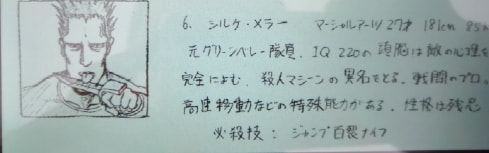 6. シルケ・メラー マーシャルアーツ 27才 181cm 85
元グリーンベレー隊員、IQ 220の頭脳は敵の心理を
完全によむ、殺人マシーンの異名をとる。戦闘のプロ。
高速移動などの特殊能力がある。性格は残忍
必殺技： ジャンプ百裂ナイフ